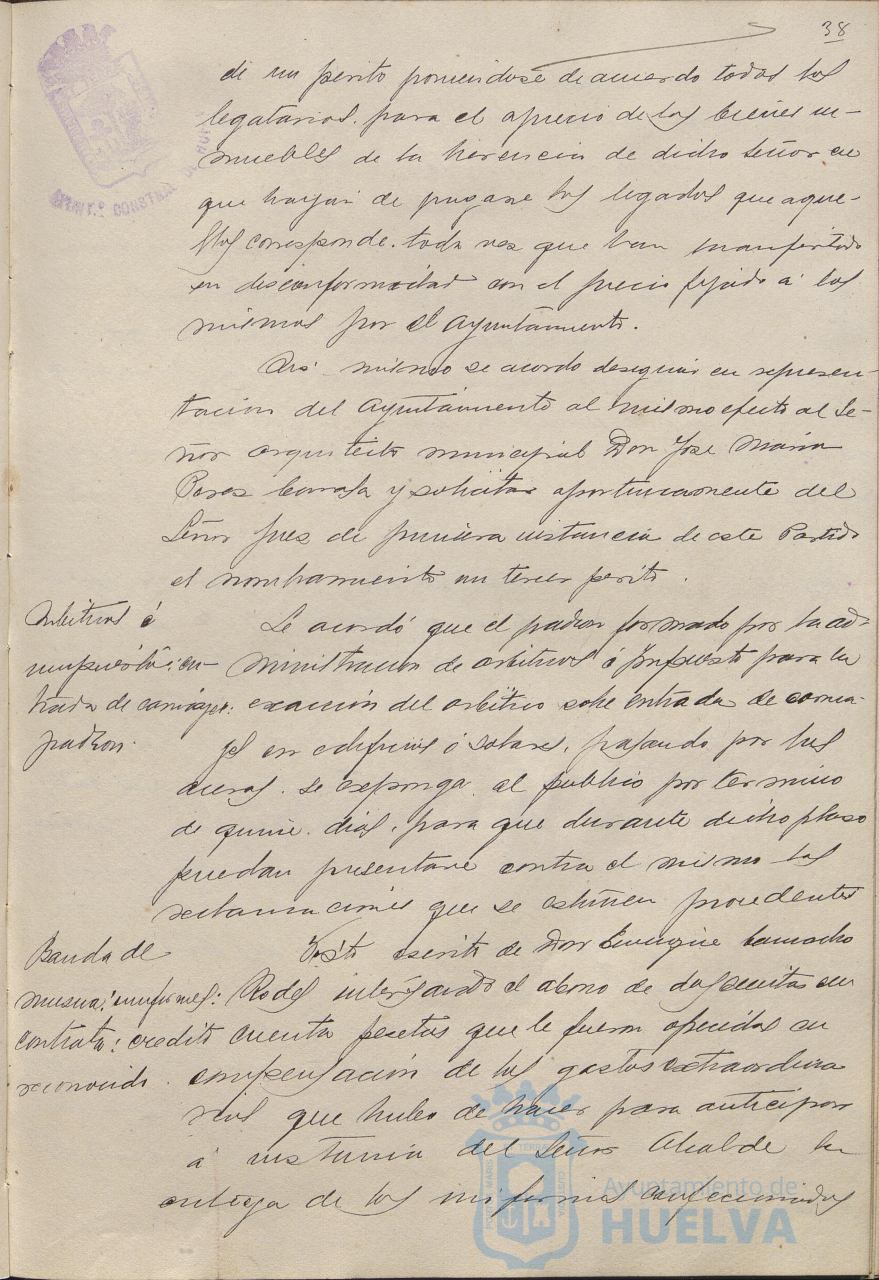 38
de un perito poniendose de acuerdo todos los
legatarios, para el aprecio de los bienes in-
muebles de la herencia de dicho Señor en
que hayan de pagarse los legados que a aque-
llos corresponde, toda vez que han manifestado
su disconformidad con el precio fijado á los
mismos por el Ayuntamiento.
Asi mismo se acordo designar en represen-
tacion del Ayuntamiento al mismo efecto al Se-
ñor arquitecto municipal Don Jose Maria
Perez Carasa y solicitar oportunamente del
Señor Juez de primera instancia de este Partido
el nombramiento un tercer perito.
Arbitrios é
impuestos: en-
trada de carruajes:
padron.
Se acordó que el padron formado por la ad-
ministracion de arbitrios é impuestos para la
exacción del arbitrio sobre entrada de carrua-
jes en edificios ó solares, pasando por las
aceras, se exponga al publico por termino
de quince dias, para que durante dicho plaso
puedan presentarse contra el mismo las
reclamaciones que se estimen procedentes
Banda de
musica: uniformes:
contrata: credito
reconocido.
Visto escrito de Don Enrique Camacho
Rodes interesando el abono de doscientas cin
cuenta pesetas que le fueron ofrecidas en
compensación de los gastos extraordina
rios que hubo de hacer para anticipar
á instancia del Señor Alcalde la
entrega de los uniformes confeccionados
Ayuntamiento de
HUELVA